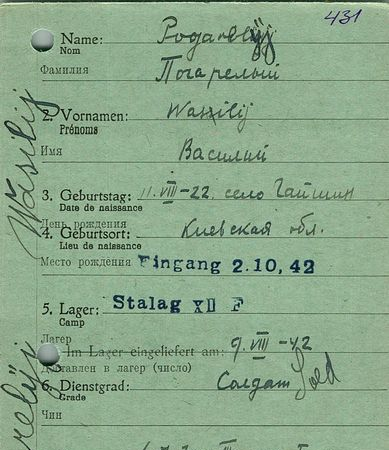 431
Name: Pogarelyj
Nom
Фамилия Погарелый
2. Vornamen: Wassilij
Prénoms
Имя Василий
3. Geburtstag: 11.VIII-22. село Гайшин
Date de naissance
День рождения
4. Geburtsort: Киевская обл.
Lieu de naissance
Место рождения Eingang 2.10,42
5. Lager: Stalag XII F
Camp
Лагер
Im Lager eingeliefert am: 9.VIII-42
Доставлен в лагер (число)
6. Dienstgrad: Солдат Sold
Grade
Чин
Wasilij